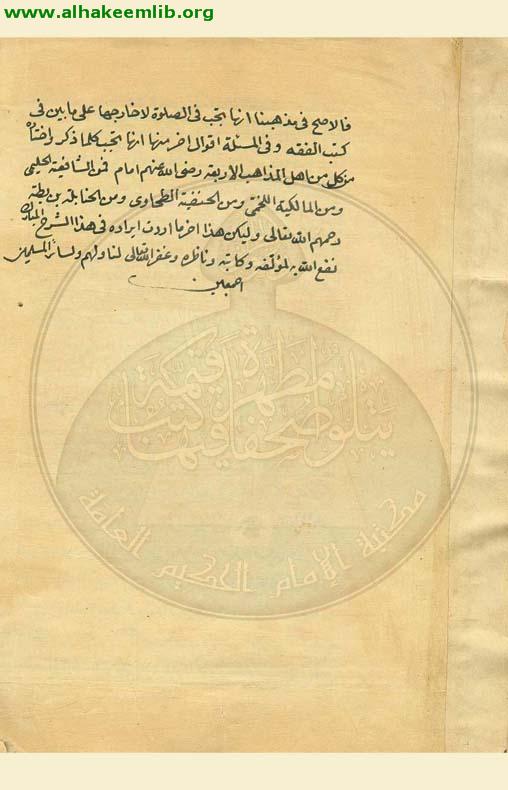 www.alhakeemlib.org
فالاصح فى مذهبنا انها تجب فى الصلوة لا خارجها على ما بين فى
كتب الفقه وفى المسئلة اقوال اخر منها انها تجب كلما ذكر واختاره
من كل من اهل المذاهب الاربعة رضى الله عنهم امام فمن الشافعية الحليمى
ومن المالكية اللخمى ومن الحنفية الطحاوى ومن الحنابلة بن بطة
رحمهم الله تعالى وليكن هذا اخر ما اردت ايراده فى هذا الشرح المبارك
نفع الله به لمؤلفه وكاتبه وناظره وغفر الله تعالى لنا ولهم ولسائر المسلمين
اجمعين
يتلو صحفا مطهرة فيها كتب قيمة
مكتبة الإمام الحكيم العامة